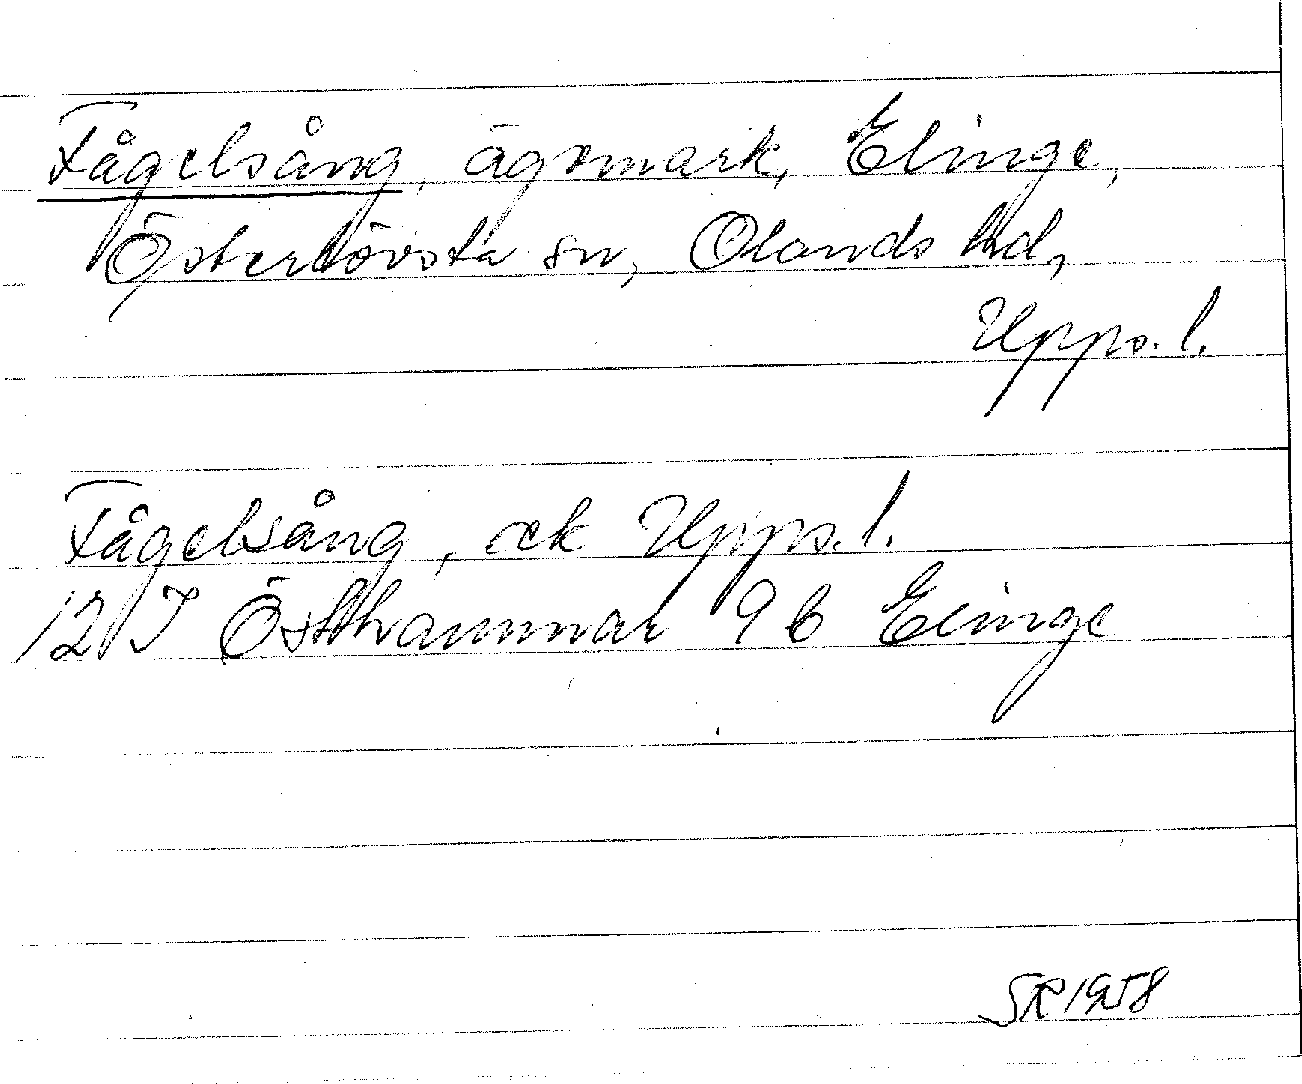 Fågelsång, ägomark, Elinge,
Österlövsta sn, Olands hd,
Upps. l.
Fågelsång, ek Upps. l.
12 I Östhammar 9 b Elinge
SR 1958